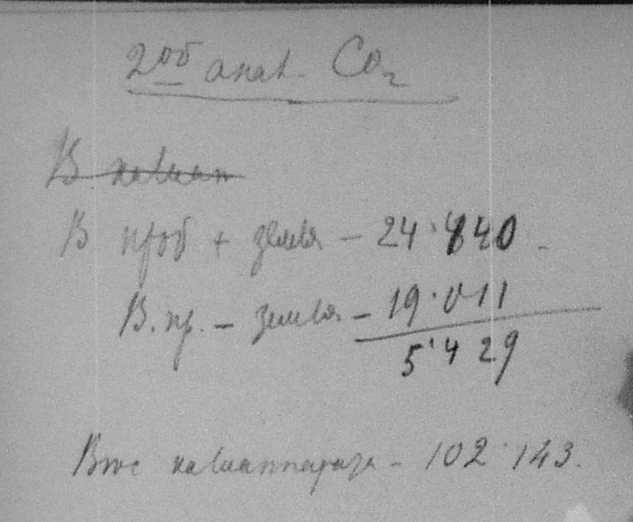 2ой анал. CO₂
В калиап
В проб + земля – 24.440 –
В. пр. – земля – 19.011
5.429
Вес калиаппарата – 102.143.